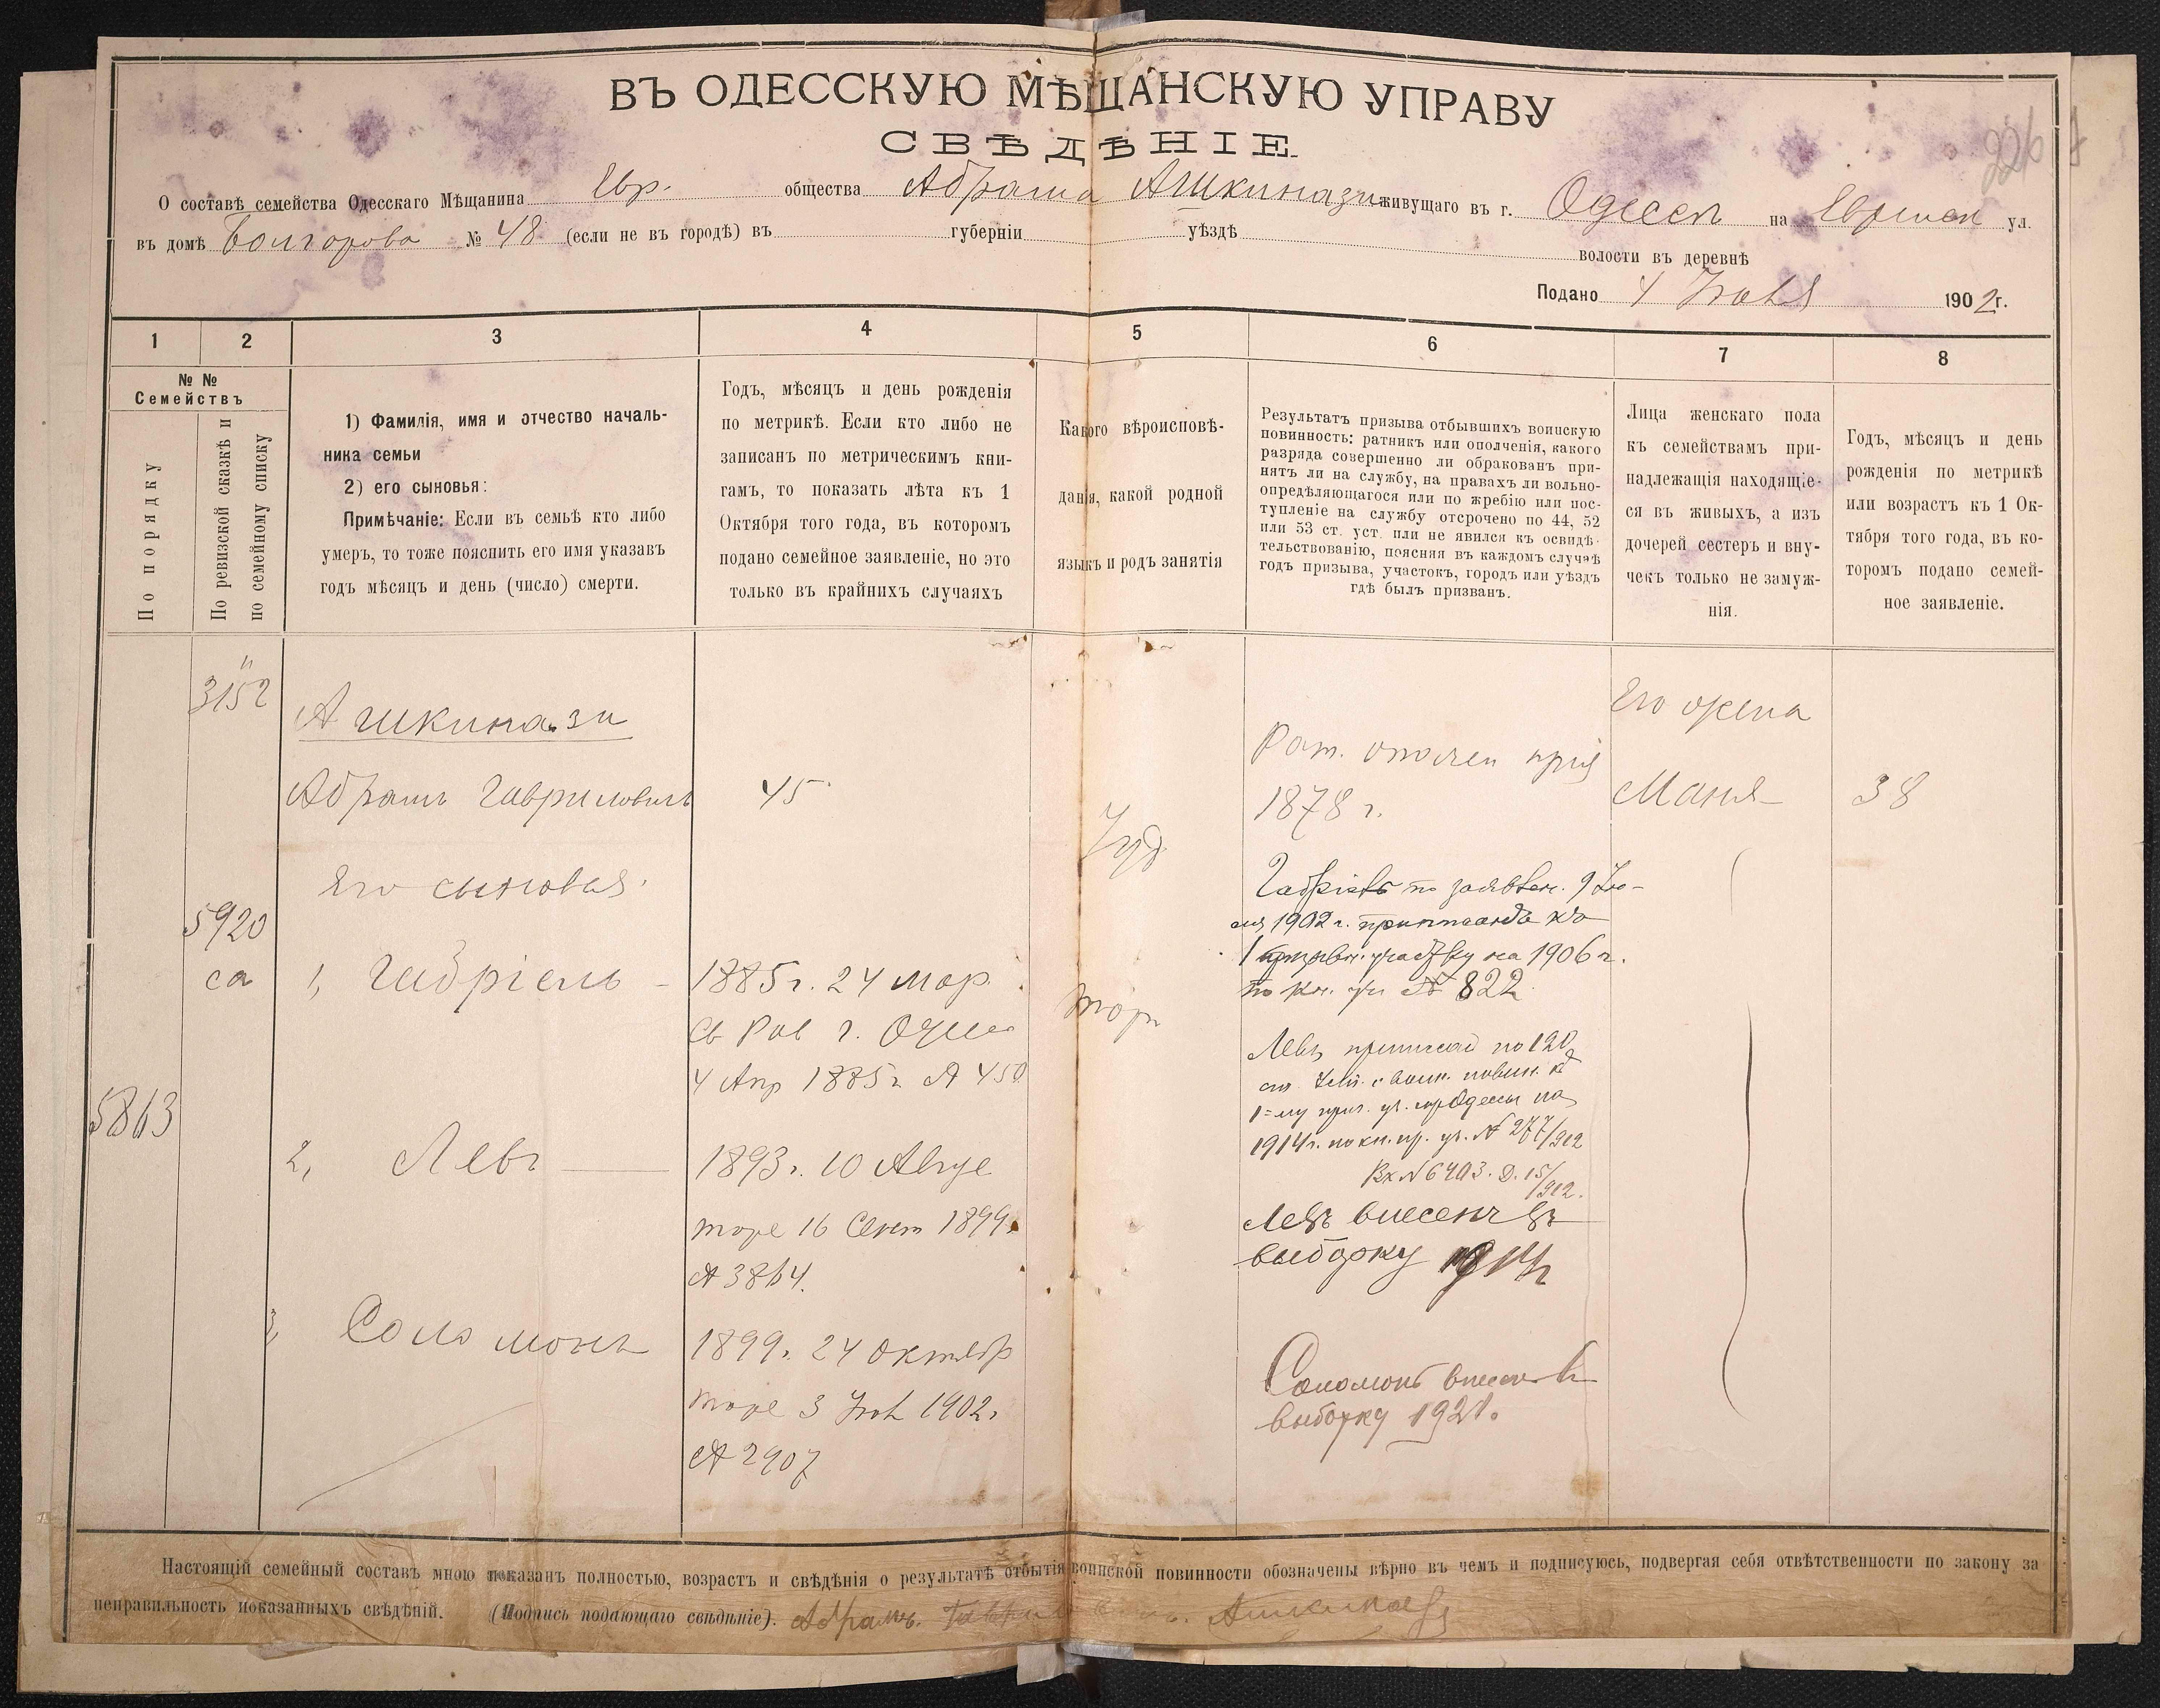 ВЪ ОДЕССКУЮ МѢЩАНСКУЮ УПРАВУ
СВѢДѢНІЕ.
226
О составѣ семейства Одесскаго Мѣщанина Евр. общества Абрама Ашкинази живущаго въ г. Одессѣ на Еврейск ул.
въ домѣ Болгарова № 48 (если не въ городѣ) въ губерніи уѣздѣ
волости въ деревнѣ
Подано 4 Іюня 1902г.
1 2 3 4 5 6 7 8
№ №
Семействъ
По порядку
По ревизской сказкѣ и
по семейному списку
1) Фамилія, имя и отчество началь-
ника семьи
2) его сыновья:
Примѣчаніе: Если въ семьѣ кто либо
умеръ, то тоже пояснить его имя указавъ
годъ мѣсяцъ и день (число) смерти.
Годъ, мѣсяцъ и день рожденія
по метрикѣ. Если кто либо не
записанъ по метрическимъ кни-
гамъ, то показать лѣта къ 1
Октября того года, въ которомъ
подано семейное заявленіе, но это
только въ крайнихъ случаяхъ
Какого вѣроисповѣ-
данія, какой родной
языкъ и родъ занятія
Результатъ призыва отбывшихъ воинскую
повинность: ратникъ или ополченія, какого
разряда совершенно ли обракованъ при-
нятъ ли на службу, на правахъ ли вольно-
опредѣляющагося или по жребію или пос-
тупленіе на службу отсрочено по 44, 52
или 53 ст. уст. или не явился къ освидѣ-
тельствованію, поясняя въ каждомъ случаѣ
годъ призыва, участокъ, городъ или уѣздъ
гдѣ былъ призванъ.
Лица женскаго пола
къ семействамъ при-
надлежащія находящіе-
ся въ живыхъ, а изъ
дочерей сестеръ и вну-
чекъ только не замуж-
нія.
Годъ, мѣсяцъ и день
рожденія по метрикѣ
или возрастъ къ 1 Ок-
тября того года, въ ко-
торомъ подано семей-
ное заявленіе.
3152
Ашкинази
Абрамъ Гавриловичъ
45
Іуд
Рат. ополчен
1878 г.
Его жена
Маня
38
Его сыновья.
5920
са
1, Габріель
1885 г. 24 мар.
Св Рав г. Одес
4 Апр 1885г № 450
торг
Габріель по заявлен. 9 Ію-
ля 1902 г. приписанъ къ
1 призывн. участку на 1906 г.
по кн. уч № 822
5863
2, Левъ
1893 г. 10 Авгус
тоже 16 Сент 1899г
№ 3864.
Левъ приписан по 120
ст. Уст. о воин. повин. къ
1=му приз. уч. гор Одессы на
1914 г. по кн. пр. уч. № 277/912
Вх № 6403. Д. 15/912.
Левъ внесенъ въ
выборку 1914 г
3, Соломонъ
1899 г. 24 Октябр
тоже 3 Іюн 1902 г
№ 2907
Соломонъ внесенъ въ
выборку 1921.
Настоящій семейный составъ мною показанъ полностью, возрастъ и свѣдѣнія о результатѣ отбытія воинской повинности обозначены вѣрно въ чемъ и подписуюсь, подвергая себя отвѣтственности по закону за
неправильность показанныхъ свѣдѣній. (Подпись подающаго свѣдѣніе). Абрамъ. Гавриловичъ. Ашкинази